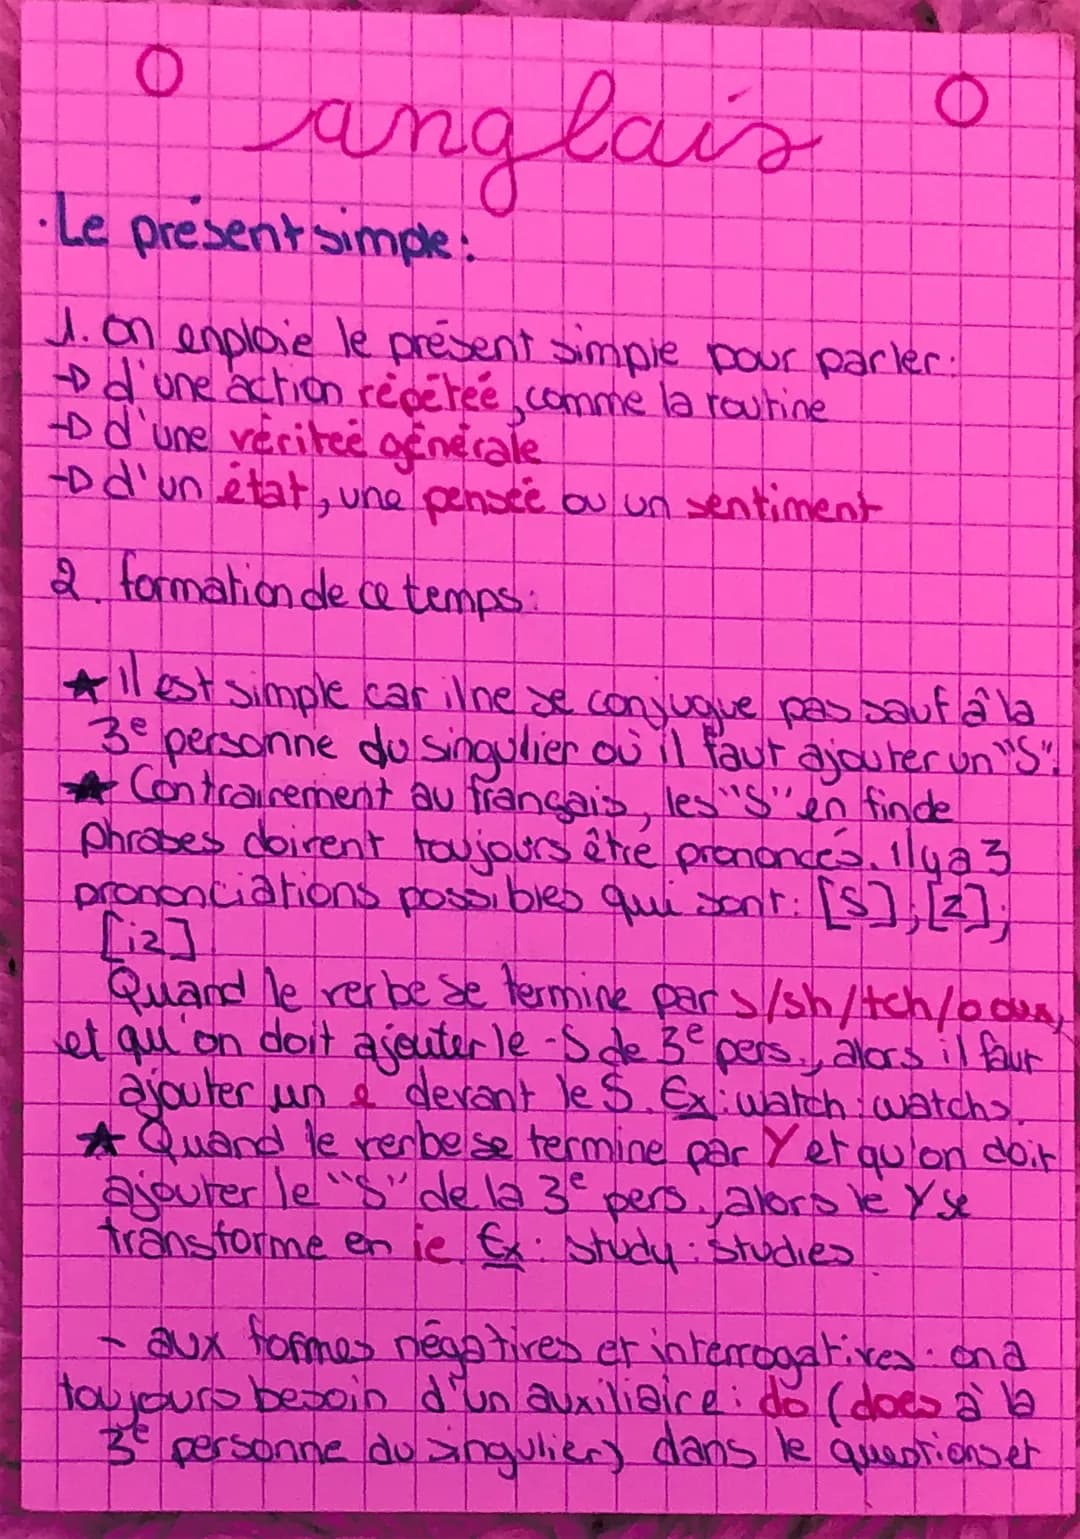 anglais
· Le présent simple :
1. on enploie le présent simple pour parler :
→ d'une action répétéé, comme la routine
→ d'une véritéé générale
→ d'un état, une penséé ou un sentiment
2. formation de ce temps :
★ il est simple car il ne se conjugue pas sauf à la
3e personne du singulier où il faut ajouter un "S".
★ Contrairement au français, les "S" en fin de
phrases doivent toujours être prononcés. il y a 3
prononciations possibles qui sont : [S] ; [Z] ;
[iz]
Quand le verbe se termine par s/sh/tch/o ou x,
et qu'on doit ajouter le -S de 3e pers., alors il faut
ajouter un e devant le S. Ex : watch : watchs
★ Quand le verbe se termine par Y et qu'on doit
ajouter le "S" de la 3e pers., alors le Y se
transforme en ie. Ex : study : studies
- aux formes négatives et interrogatives : on a
toujours besoin d'un auxiliaire : do (does à la
3e personne du singulier) dans le questions et